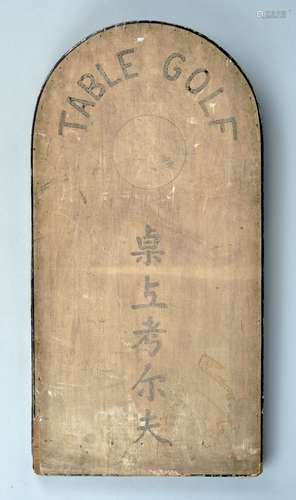 TABLE GOLF
桌上考尔夫